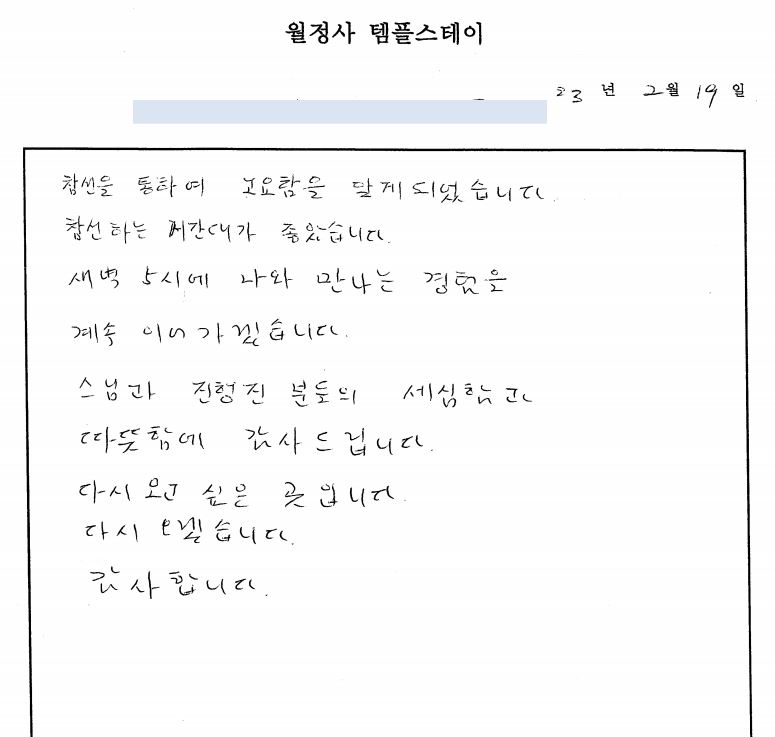 월정사 템플스테이
23 년 2월 19 일
참선을 통하여 고요함을 알게되었습니다
참선하는 시간대가 좋았습니다.
새벽 5시에 나와 만나는 경험을
계속 이어가겠습니다.
스님과 진행진 분들의 세심함과
따뜻함에 감사드립니다.
다시 오고 싶은 곳 입니다.
다시 오겠습니다.
감사합니다.